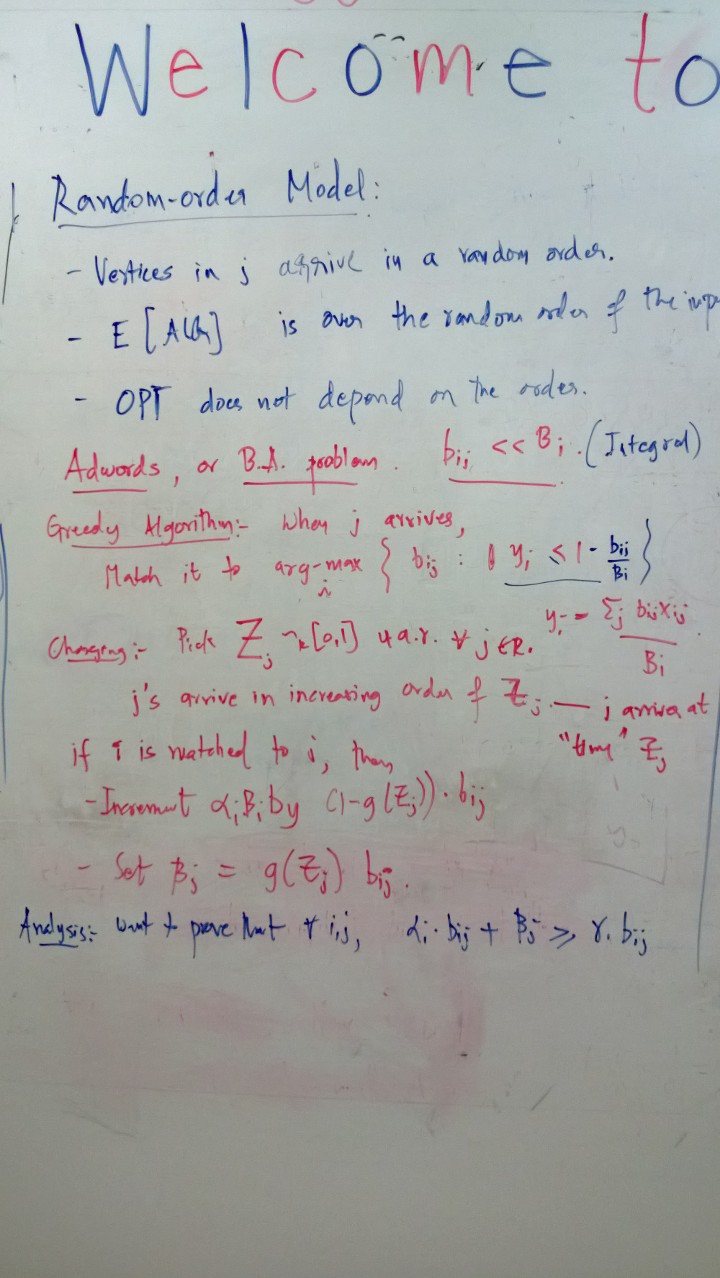 Welcome to
Random-order Model:
- Vertices in j arrive in a random order.
- E [ALG] is over the random order of the inp
- OPT does not depend on the order.
Adwords, or B.A. problem. b_ij << B_i. (Integral)
Greedy Algorithm:- When j arrives,
Match it to arg-max_i { b_ij : y_i ≤ 1 - b_ij/B_i }
y_i = Σ_j b_ij x_ij / B_i
Charging:- Pick Z_j ~ [0,1] u.a.r. ∀ j ∈ R.
j's arrive in increasing order of Z_j. — j arrives at
"time" Z_j
if i is matched to j, then
- Increment α_i B_i by (1-g(Z_j)) · b_ij
- Set β_j = g(Z_j) b_ij.
Analysis:- Want to prove that ∀ i,j, α_i · b_ij + β_j ≥ γ. b_ij